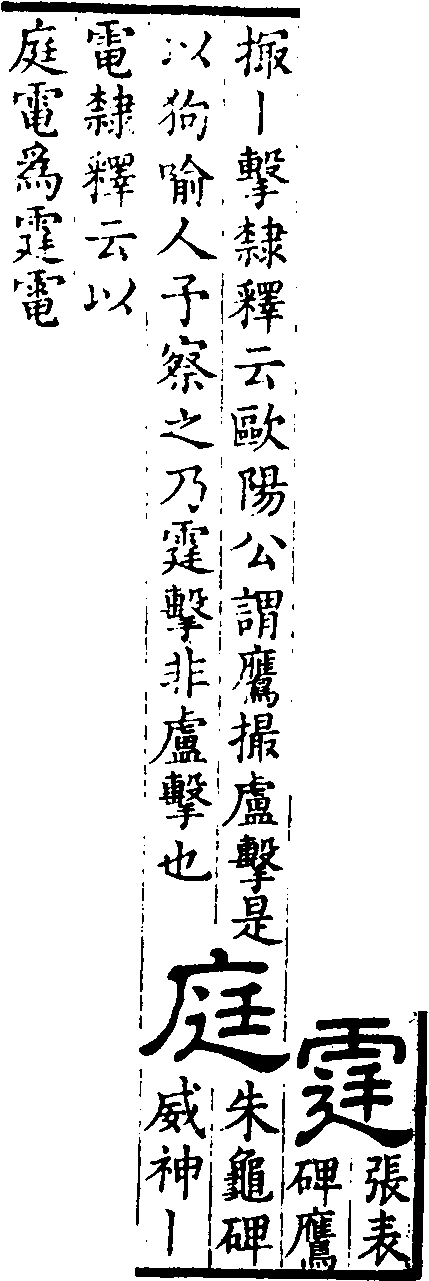 霆
張表
碑鷹
撮丨擊隸釋云歐陽公謂鷹撮盧擊是
以狗喻人子察之乃霆擊非盧擊也
庭
朱龜碑
威神丨
電隸釋云以
庭電爲霆電